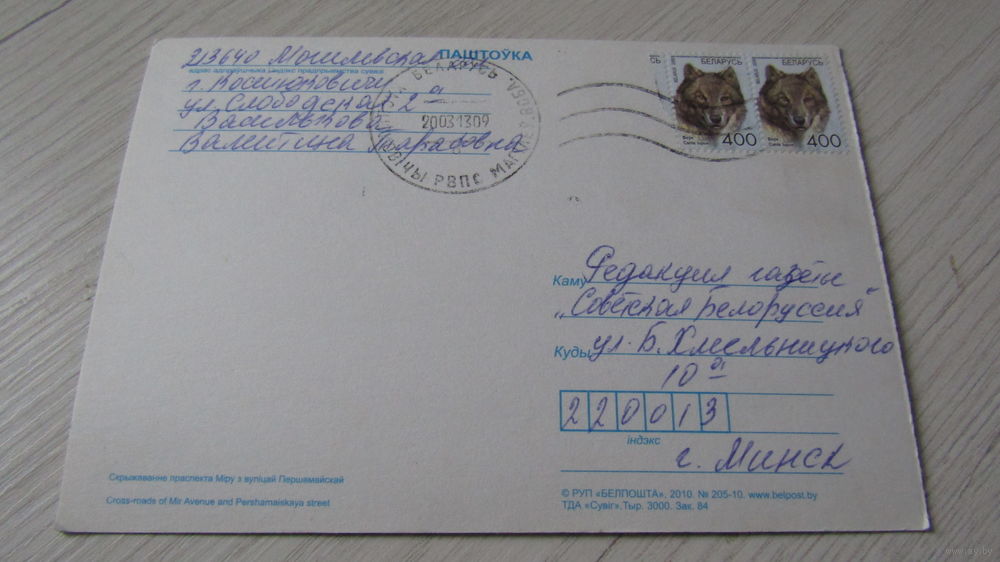 ПАШТОЎКА
213640 Могилевская
адрас адпраўшчыка і індэкс прадпрыемства сувязі
г. Костюковичи
ул. Слободская 2а
Василькова
Валентина
БЕЛАРУСЬ
20031309
РВПС МАГІЛ
БЕЛАРУСЬ
400
БЕЛАРУСЬ
400
Каму Редакция газеты
„Советская Белоруссия"
Куды ул. Б. Хмельницкого
10а
220013
індэкс
г. Минск
Скрыжаванне праспекта Міру з вуліцай Першамайскай
Cross-roads of Mir Avenue and Pershamaiskaya street
© РУП «БЕЛПОШТА», 2010. № 205-10. www.belpost.by
ТДА «Сувіг».Тыр. 3000. Зак. 84
www.ay.by